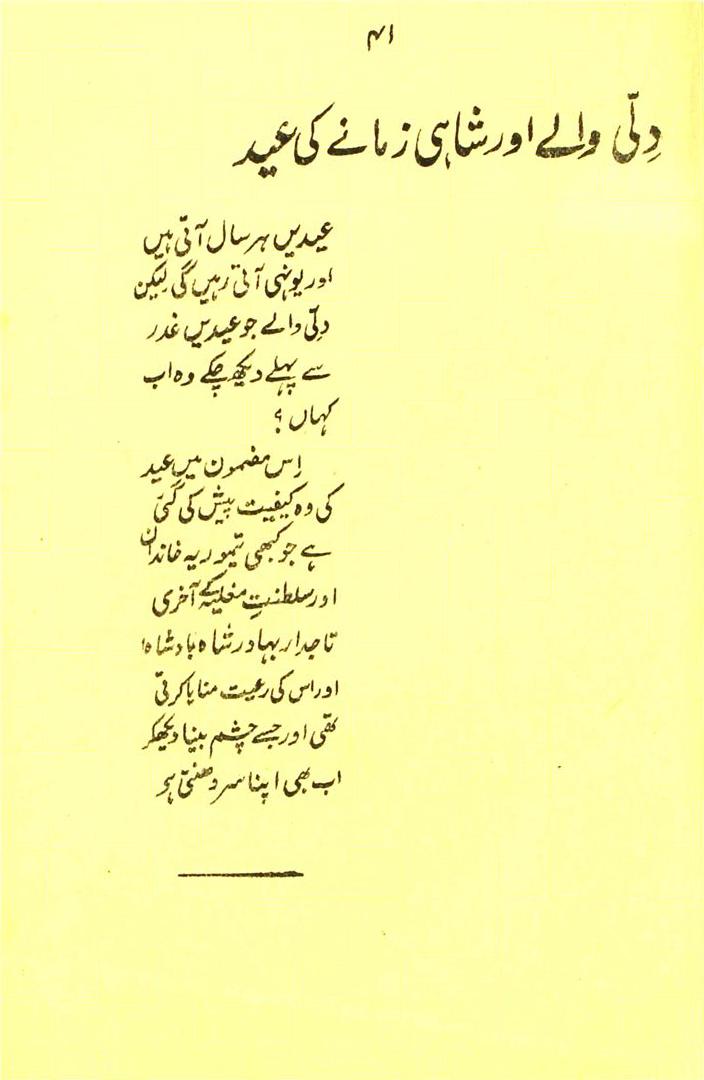 ۴۱
دِلّی والے اور شاہی زمانے کی عید
عیدیں ہر سال آتی ہیں
اور یونہی آتی رہیں گی لیکن
دِلّی والے جو عیدیں غدر
سے پہلے دیکھ چکے وہ اب
کہاں ؟
اِس مضمون میں عید
کی وہ کیفیت پیش کی گئی
ہے جو کبھی تیموریہ خاندان
اور سلطنتِ مغلیہ کے آخری
تاجدار بہادر شاہ بادشاہ
اور اس کی رعیت منایا کرتی
تھی اور جسے چشم بینا دیکھکر
اب بھی اپنا سر دھنتی ہو